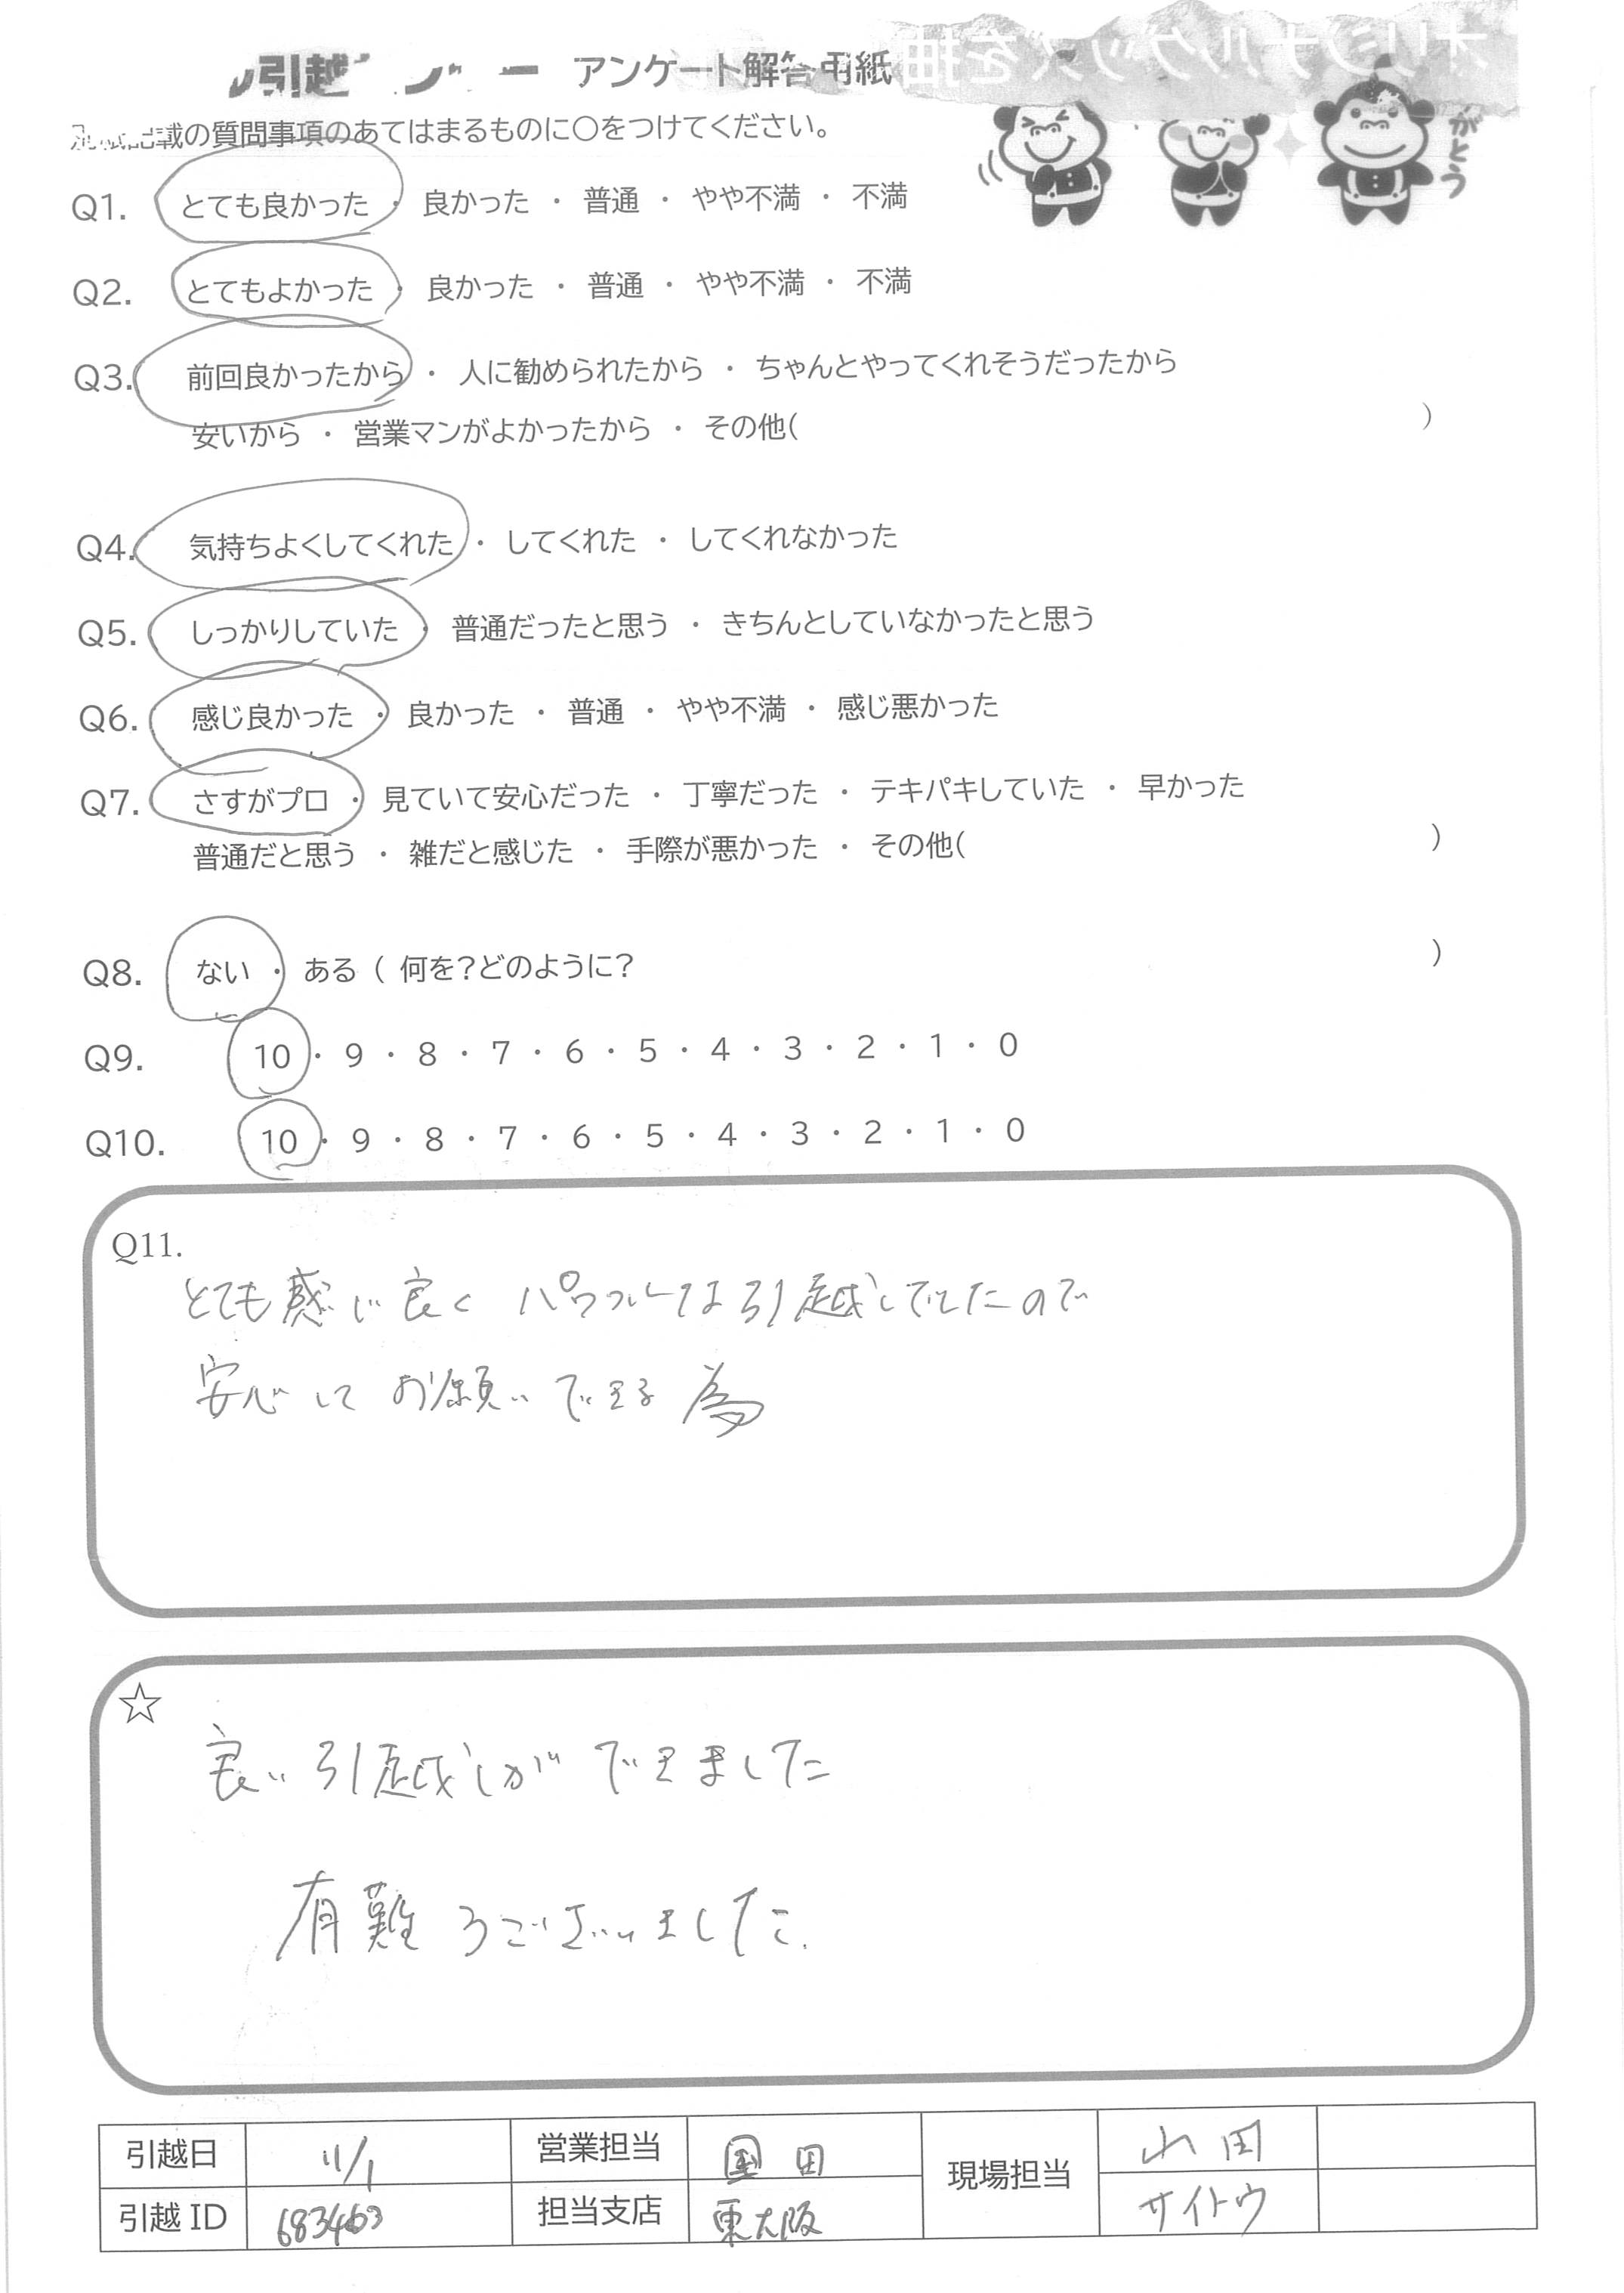 引越 アンケート解答用紙
オリジナルグッズを抽
がとう
載の質問事項のあてはまるものに○をつけてください。
Q1. とても良かった ・ 良かった ・ 普通 ・ やや不満 ・ 不満
Q2. とてもよかった ・ 良かった ・ 普通 ・ やや不満 ・ 不満
Q3. 前回良かったから ・ 人に勧められたから ・ ちゃんとやってくれそうだったから
安いから ・ 営業マンがよかったから ・ その他( )
Q4. 気持ちよくしてくれた ・ してくれた ・ してくれなかった
Q5. しっかりしていた ・ 普通だったと思う ・ きちんとしていなかったと思う
Q6. 感じ良かった ・ 良かった ・ 普通 ・ やや不満 ・ 感じ悪かった
Q7. さすがプロ ・ 見ていて安心だった ・ 丁寧だった ・ テキパキしていた ・ 早かった
普通だと思う ・ 雑だと感じた ・ 手際が悪かった ・ その他( )
Q8. ない ・ ある ( 何を?どのように? )
Q9. 10 ・ 9 ・ 8 ・ 7 ・ 6 ・ 5 ・ 4 ・ 3 ・ 2 ・ 1 ・ 0
Q10. 10 ・ 9 ・ 8 ・ 7 ・ 6 ・ 5 ・ 4 ・ 3 ・ 2 ・ 1 ・ 0
Q11.
とても感じ良く パワフルな引越しでしたので
安心して お願いできる 為
☆
良い引越しが できました
有難うございました.
引越日 11/1 営業担当 田 現場担当 山田
引越ID 683463 担当支店 東大阪 サイトウ